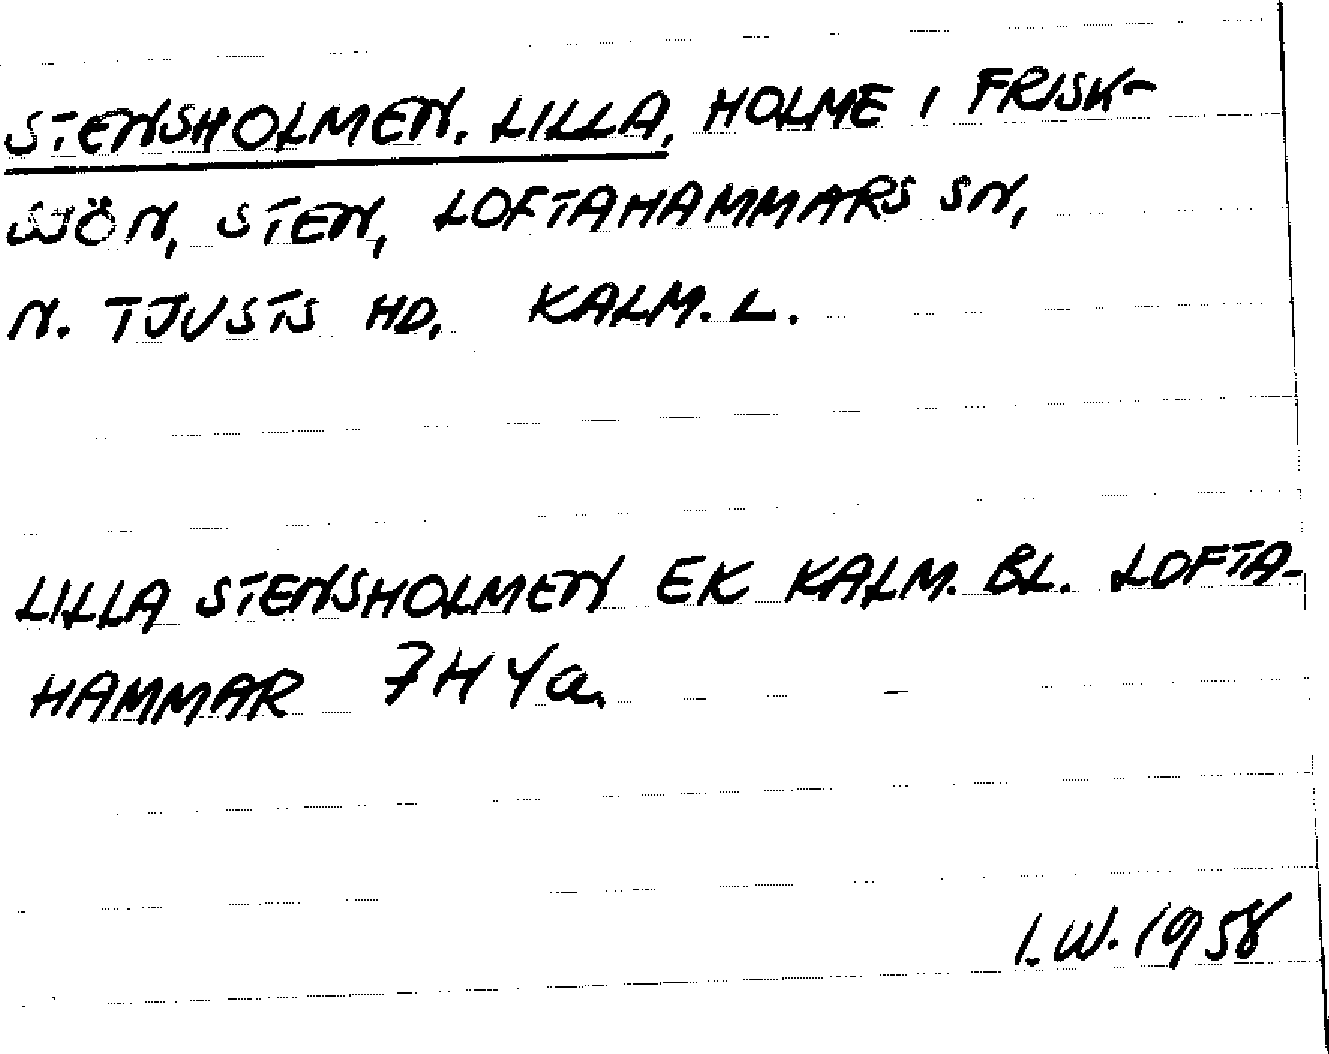 STENSHOLMEN. LILLA, HOLME I FRISK-
SJÖN, STEN, LOFTAHAMMARS SN,
N. TJUSTS HD. KALM. L.
LILLA STENSHOLMEN EK KALM. BL. LOFTA-
HAMMAR 7H4a.
I.W. 1958